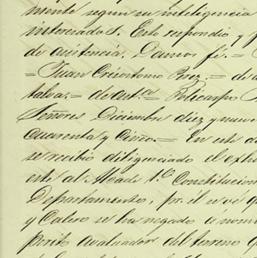 mento segun su inteligencia
interesados. Esto respondio y f
de asistencia. Damos fé. =
= Juan Crisostomo Brez. = de
talva. = de Anta. = Policarpo
Señores Diciembre diez y nueve
cuarenta y Cinco. = En este d
se recibio diligenciado el exhor
este al Alcade 1.º Constitucion
Departamento, por el se ve q
y Calero se ha negado a nom
perito avaluador del terreno q